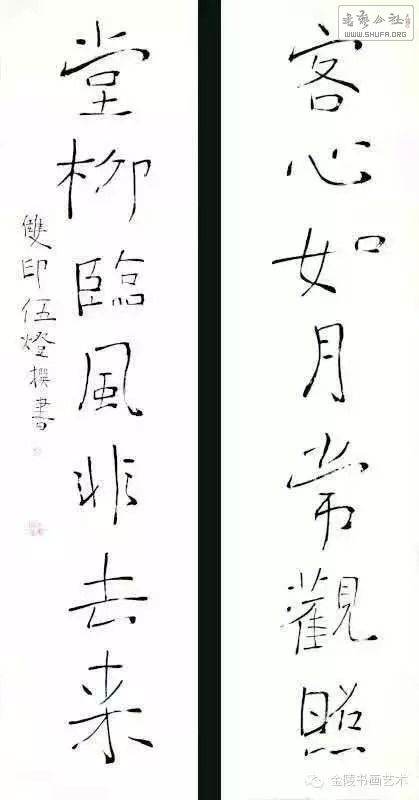 客心如月常觀照
堂柳臨風非去来
雙印伍燈撰書
書藝公社
WWW.SHUFA.ORG
金陵书画艺术